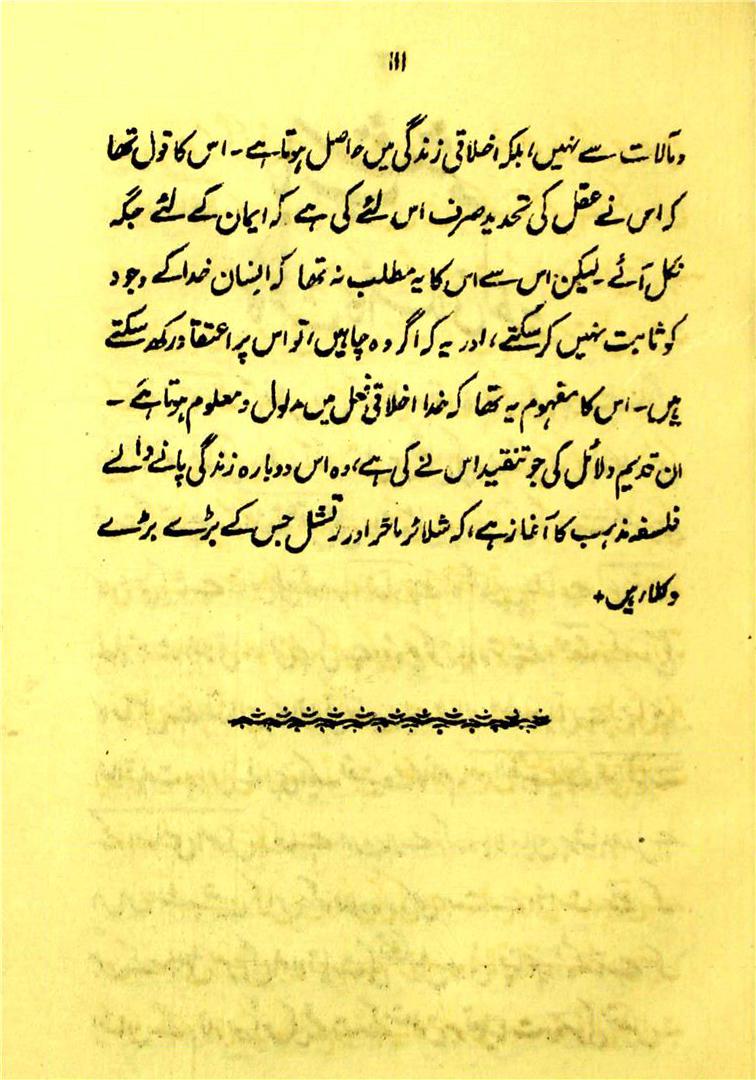 ۱۱۱
و آلات سے نہیں، بلکہ اخلاقی زندگی میں حاصل ہوتا ہے۔ اس کا قول تھا
کہ اس نے عقل کی تحدید صرف اس لئے کی ہے کہ ایمان کے لئے جگہ
نکل آئے۔ لیکن اس سے اس کا یہ مطلب نہ تھا کہ انسان خدا کے وجود
کو ثابت نہیں کر سکتے، اور یہ کہ اگر وہ چاہیں، تو اس پر اعتقاد رکھ سکتے
ہیں۔ اس کا مفہوم یہ تھا کہ خدا اخلاقی فعل میں مدلول و معلوم ہوتا ہے۔
ان قدیم دلائل کی جو تنقید اس نے کی ہے، وہ اس دوبارہ زندگی پانے والے
فلسفہ مذہب کا آغاز ہے، کہ شلائر ماخر اور رتشل جس کے بڑے بڑے
وکلاء ہیں +